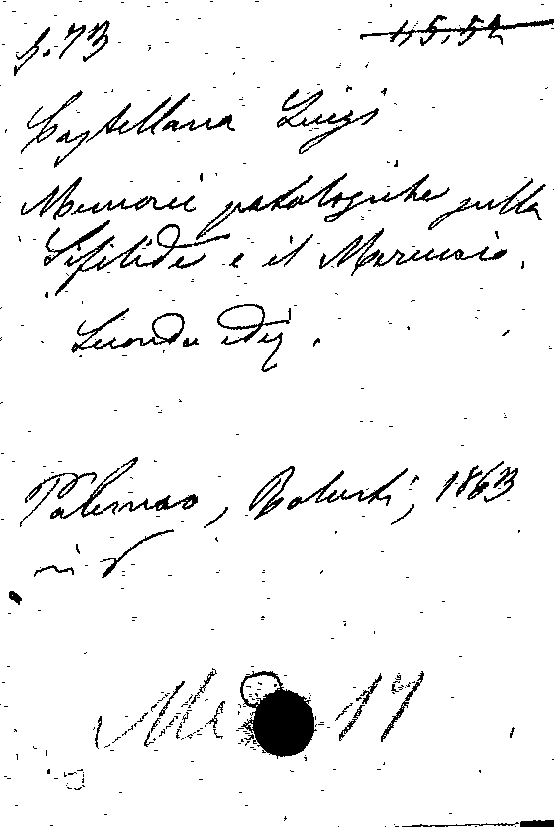 S.73 45.52
Castellana Luigi
Memorie patologiche sulla
Sifilide e il Mercurio.
Seconda ediz.
Palermo, 1863
in 8
17